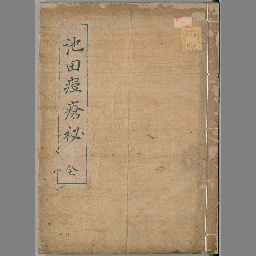 池田痘瘡秘 全